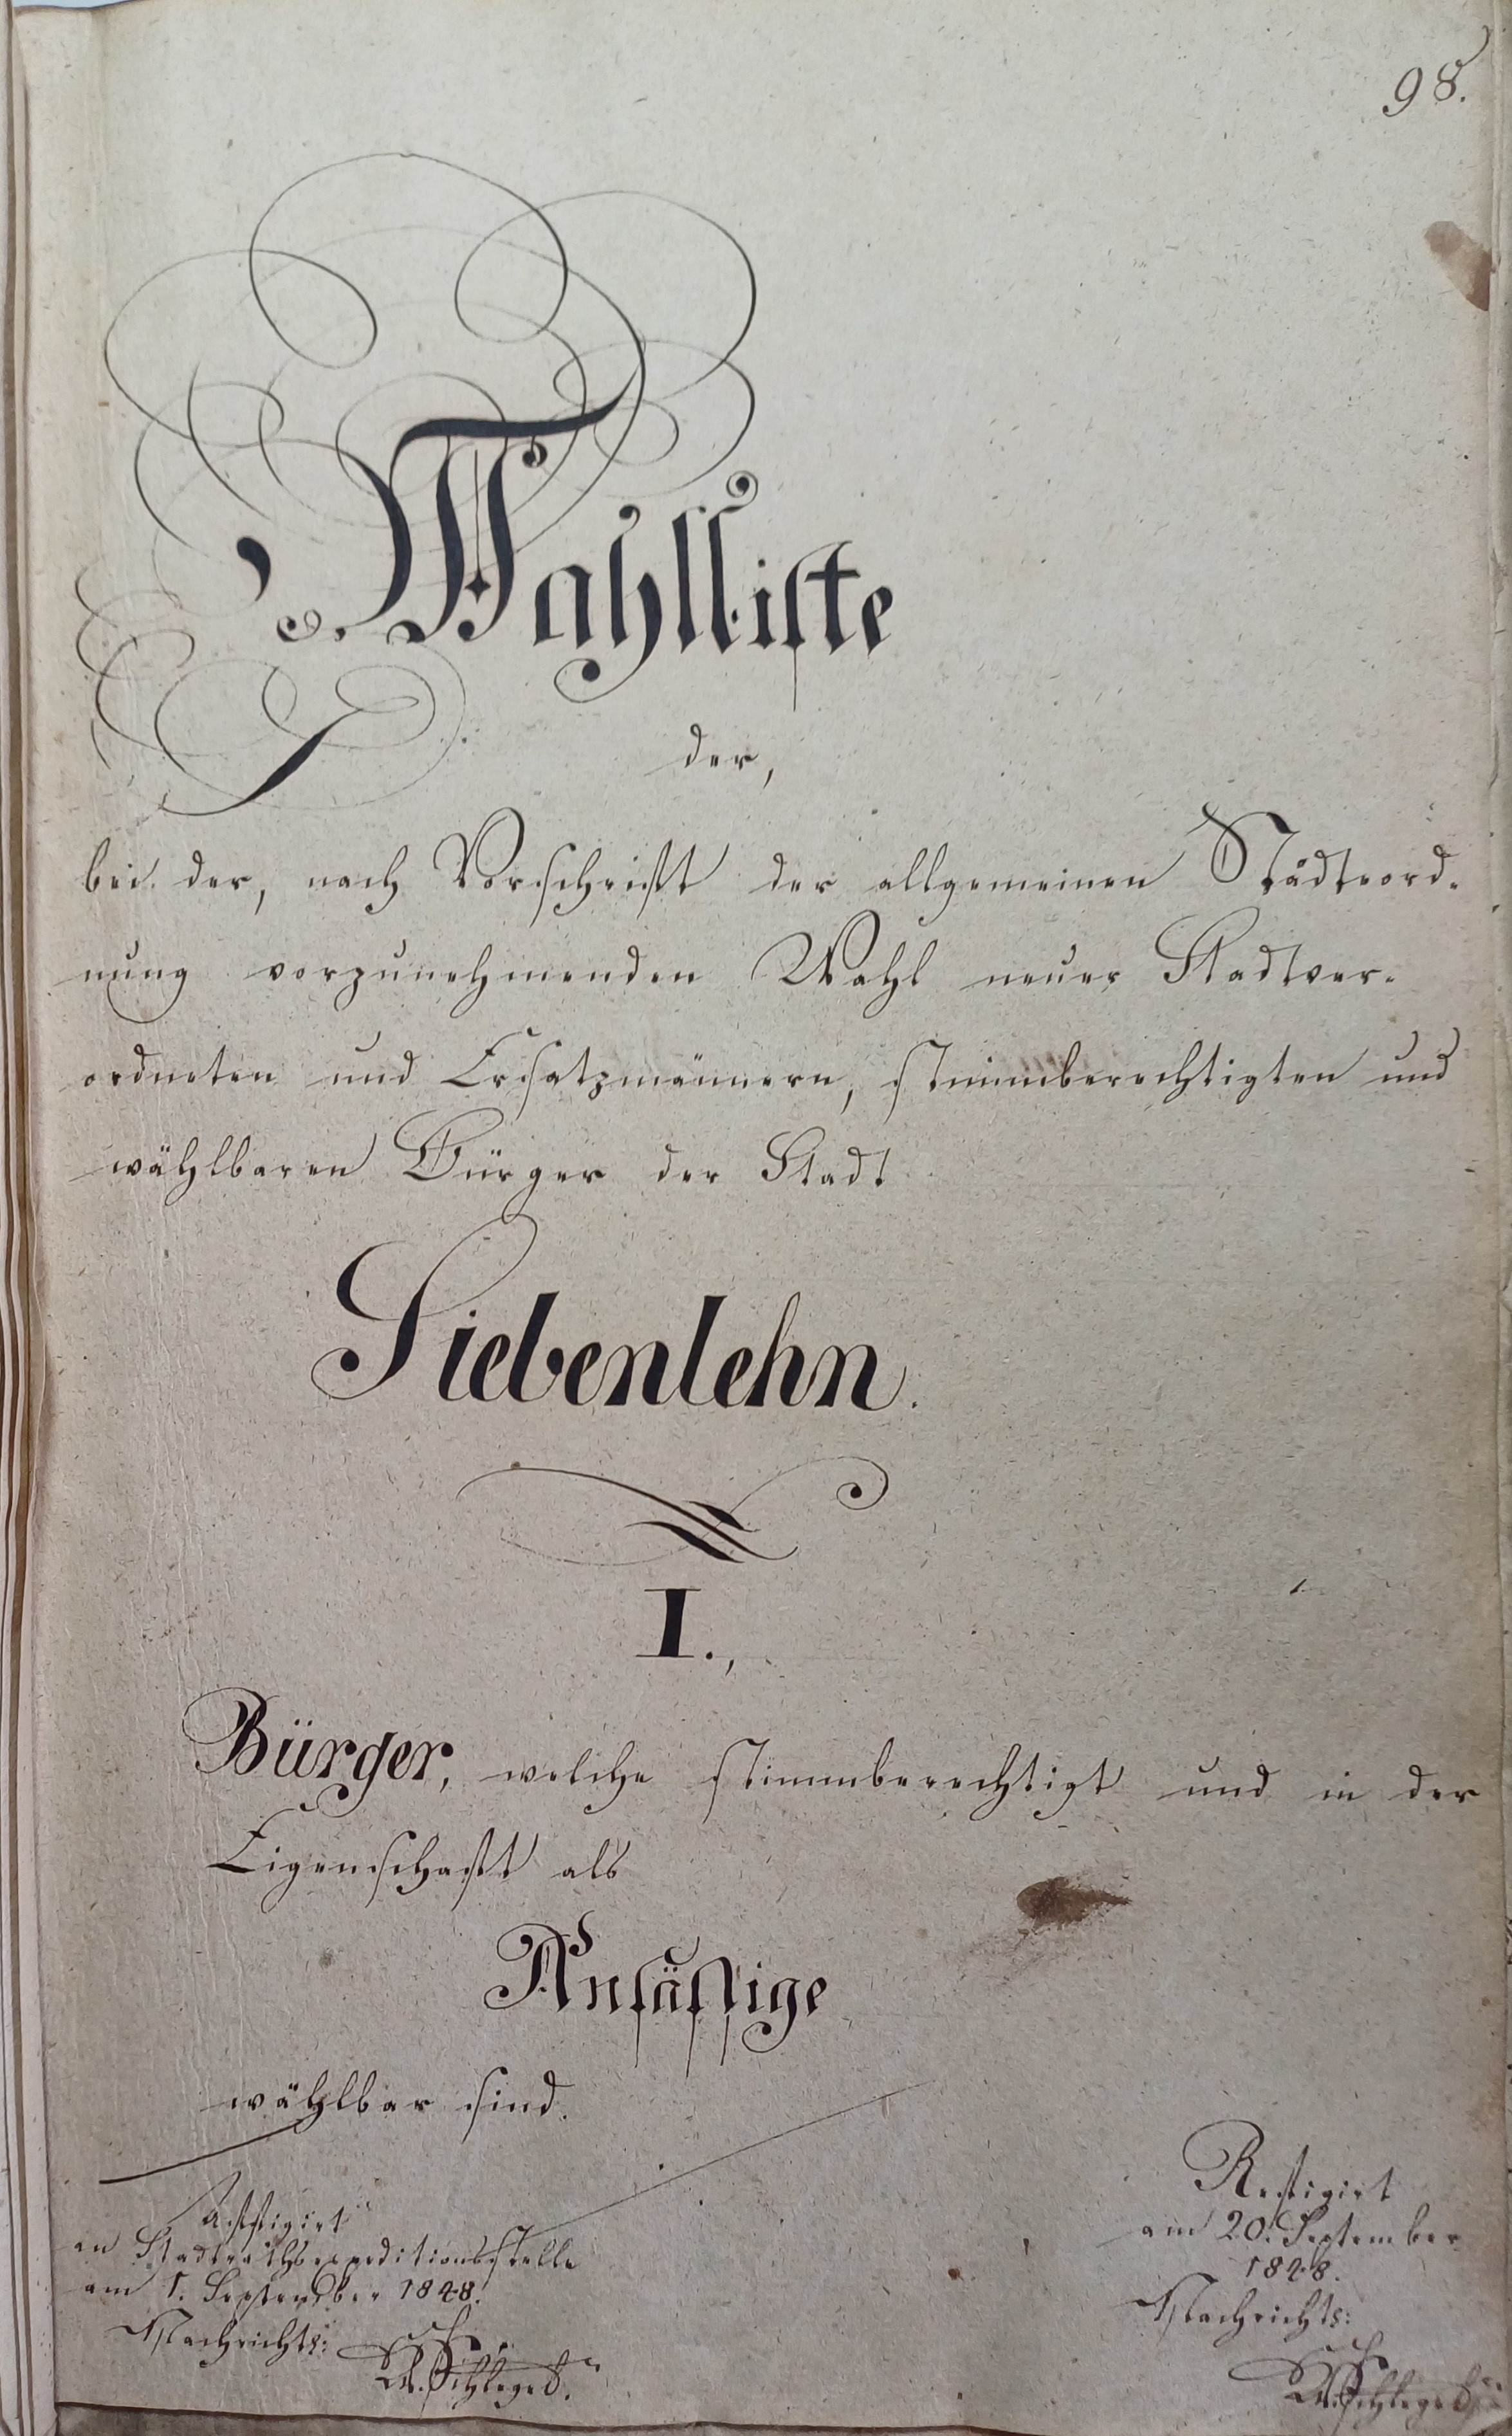 98.
Wahlliste
der,
bei der, nach Vorschrift der allgemeinen Städteord-
nung vorzunehmenden Wahl neuer Stadtver-
ordneten und Ersatzmännern, stimmberechtigten und
wählbaren Bürger der Stadt
Siebenlehn.
I.,
Bürger, welche stimmberechtigt und in der
Eigenschaft als
Ansässige
wählbar sind.
Affigirt
an Stadtrathsexpeditionsstelle
am 1. September 1848.
Nachrichtl:
Schlegel.
Refigirt
am 20. September
1848.
Nachrichtl:
Schlegel